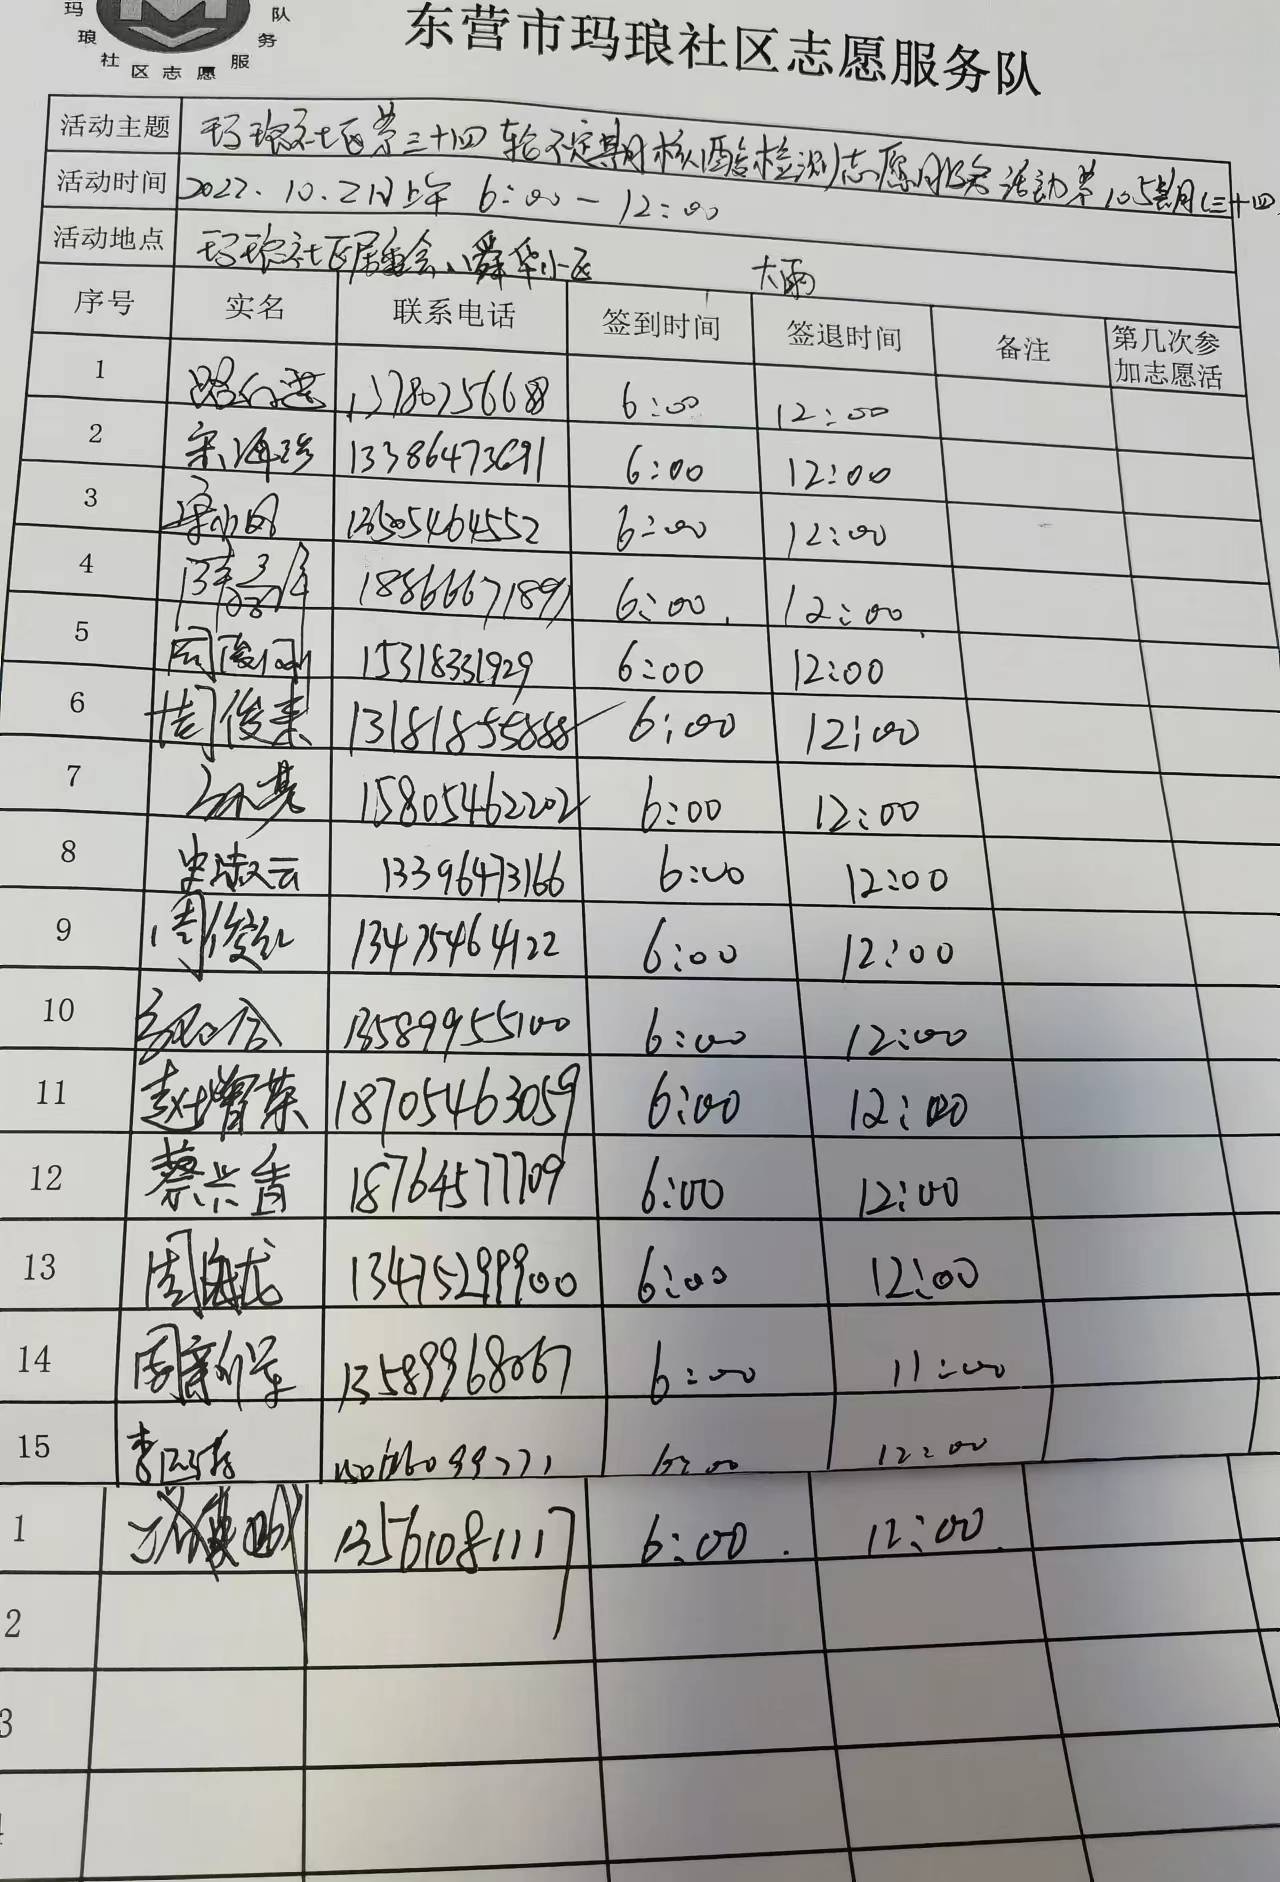 玛琅社区志愿服务队
东营市玛琅社区志愿服务队
活动主题 玛琅社区第三十四轮不定期核酸检测志愿服务活动第105期(三十四
活动时间 2022.10.2日上午 6:00-12:00
活动地点 玛琅社区居委会、舜华小区 大雨
序号 实名 联系电话 签到时间 签退时间 备注 第几次参加志愿活
1 13780756688 6:00 12:00
2 宋海珍 13386473691 6:00 12:00
3 13505464552 6:00 12:00
4 18866671897 6:00 12:00
5 周俊刚 15318331929 6:00 12:00
6 周俊来 13181855888 6:00 12:00
7 15805462202 6:00 12:00
8 史淑云 13396473166 6:00 12:00
9 周俊红 13475464122 6:00 12:00
10 13589955100 6:00 12:00
11 赵增荣 18705463059 6:00 12:00
12 蔡兴香 18764577709 6:00 12:00
13 周海龙 13475299900 6:00 12:00
14 周新军 13589968067 6:00 11:00
15 李 6:00 12:00
1 13561081117 6:00 12:00
2
3